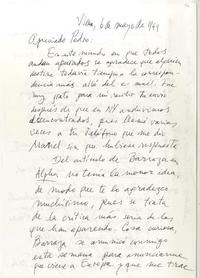 Viena, 6 de mayo de 1999
Apreciado Pedro:
En este mundo en que todos
andan apurados se agradece que alguien
destine todavía tiempo a la correspon-
dencia más allá del e-mail. Fue
muy grato para mí recibir tu envío
después de que en NY anduvimos
desencontrados, pues llamé varias
veces a tu teléfono que me dio
Marcel sin que hubiese respuesta.
Del artículo de Barraza en
Alpha no tenía la menor idea,
de modo que te lo agradezco
muchísimo, pues se trata
de la crítica más seria de las
que han aparecido. Cosa curiosa,
Barraza se comunicó conmigo
esta semana para anunciarme
que viene a Europa y que me trae